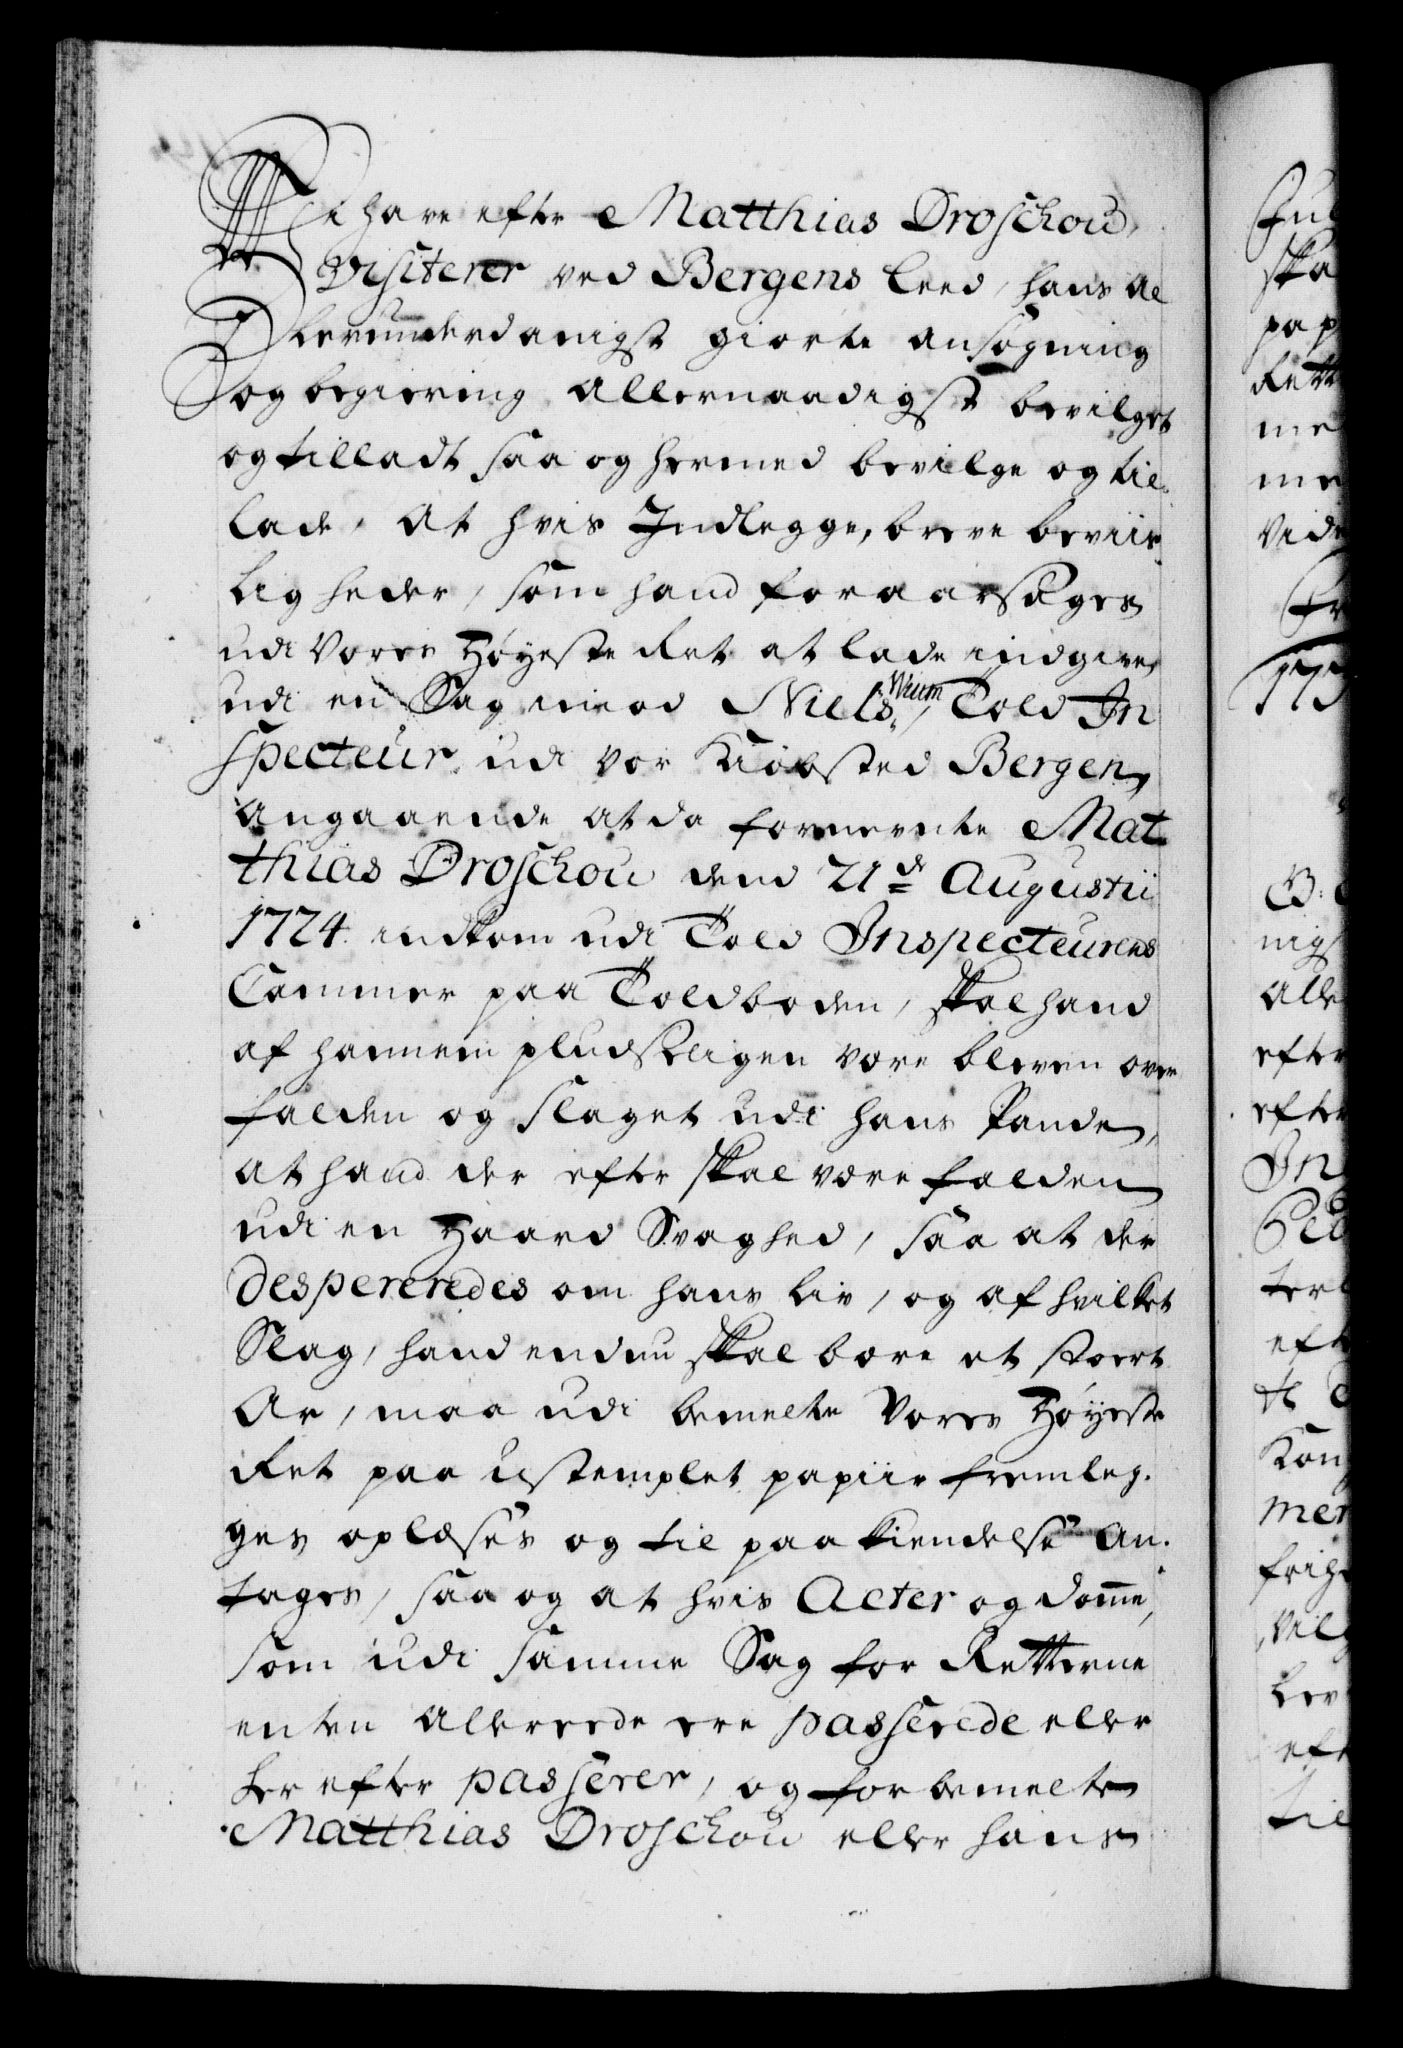 We have efter Matthias Droschou,
Visiterer ved Bergens leed, hans al
lerunderdanigst giorte ansøgning
og begiering allernaadigst bevilget
og tilladt saa og hermed bevilge og til-
lade, at hvis Indlegge, breve beviis-
ligheder, som hand foraarsages
udi Vores Høyeste Ret at lade indgive,
udi en Sag imod Niels Wium, Told In
specteur udi vor Kiøbsted Bergen,
angaaende at da formeente Mat-
thias Droschou dend 21de Augustii
1724 indkom udi Told Inspecteurens
Cammer paa Toldboden, skal hand
af hannem pludseligen være bleven over
falden og slaget udi hans Pande,
at hand der efter skal være falden
udi en Haard Svaghed, saa at der
despereredes om hans liv, og af hvilket
Slag, hand endnu skal bære et stoert
Ar, maa udi bemelte Vores Høyeste
Ret paa ustemplet papiir fremleg-
ges oplæses og til paakiendelse an-
tages, saa og at hvis Acter og domme,
som udi samme Sag for Retterne
enten allereede ere passerede eller
her efter passerer, og for bemelte
Matthias Droschou eller hans